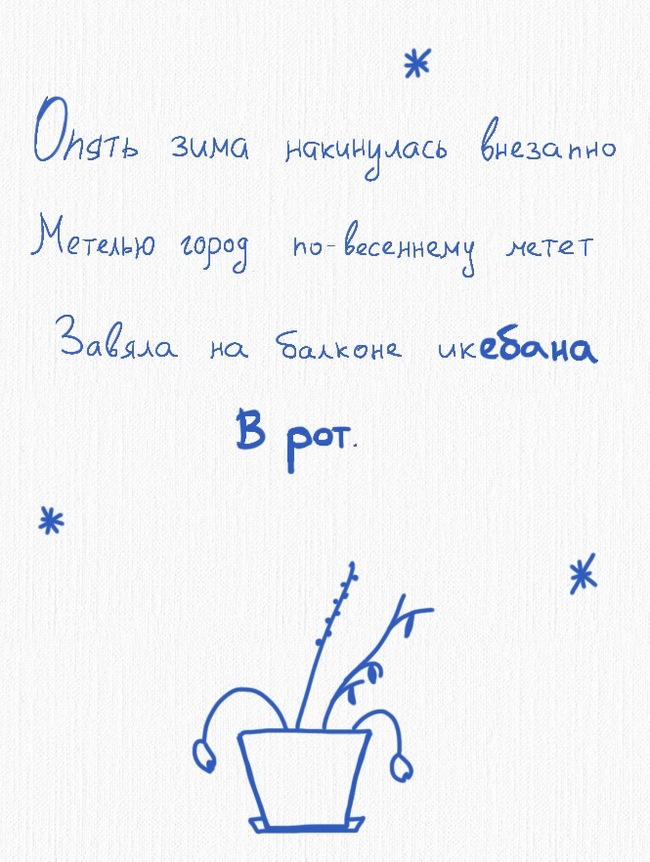 Опять зима накинулась внезапно
Метелью город по-весеннему метет
Завяла на балконе икебана
В рот.